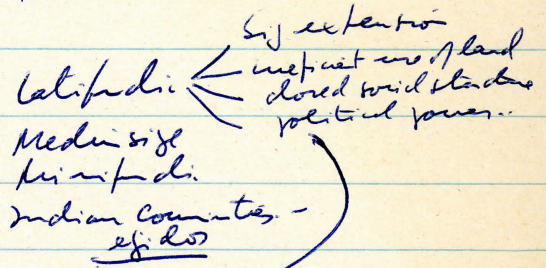 big extension
inneficient use of land
Latifundio
closed social structure
political power..
Medium size
Minifundio
Indian Comunities -
ejidos